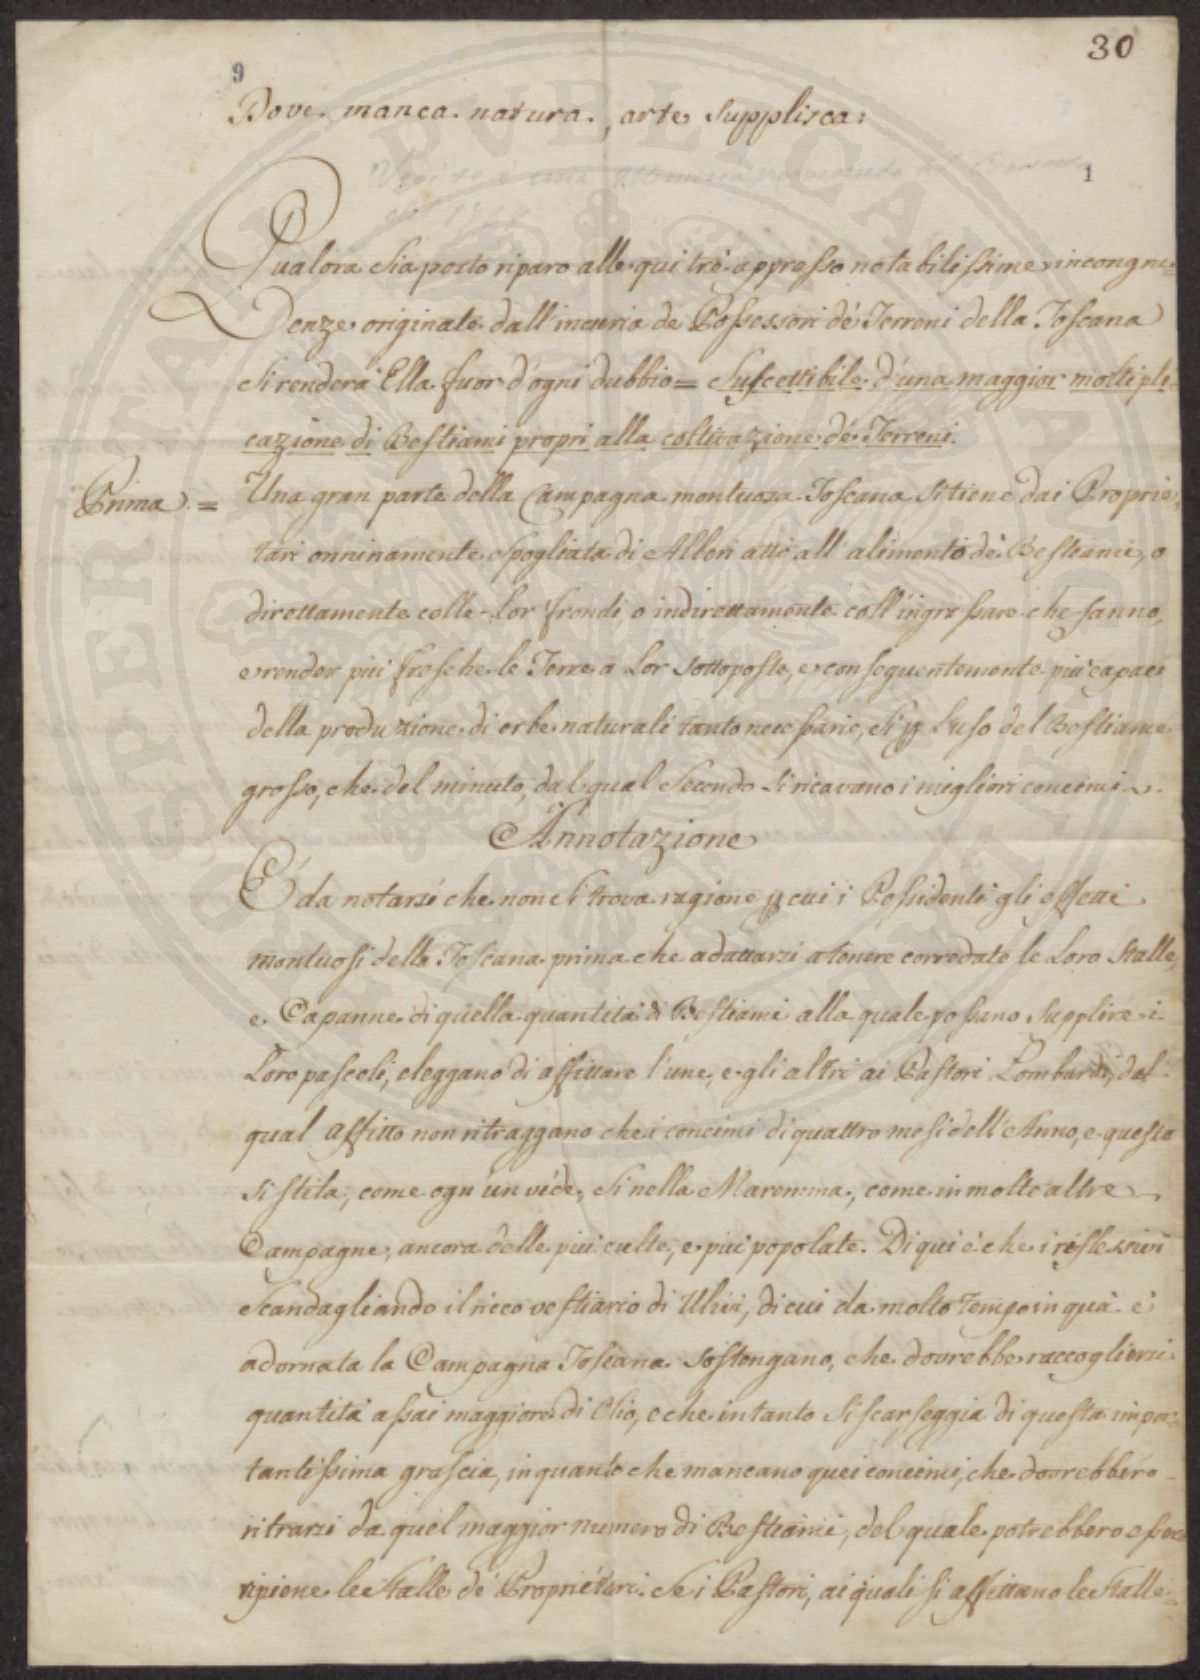 30
9
Dove manca natura, arte supplisca:
1
Qualora sia posto riparo alle qui trè appresso notabilissime incongru=
enze originate dall'incuria de Possessori de' Terreni della Toscana
si renderà Ella fuor d'ogni dubbio = Suscettibile d'una maggior moltipli=
cazione di Bestiami propri alla coltivazione de' Terreni.
Prima = Una gran parte della Campagna montuosa Toscana si tiene dai Proprie=
tari onninamente spogliata di Alberi atti all'alimento de' Bestiami, o
direttamente colle lor frondi, o indirettamente coll'ingrassare che fanno,
e render più fresche le Terre a lor sottoposte, e conseguentemente più capaci
della produzione di erbe naturali tanto necessarie, sì p l'uso del Bestiame
grosso, che del minuto, dal qual secondo si ricavano i migliori concimi.
Annotazione
É da notarsi che non si trova ragione p cui i Possidenti gli effetti
montuosi della Toscana prima che adattarsi a tenere corredate le Loro Stalle,
e Capanne di quella quantità di Bestiami alla quale possano supplire i
Loro pascoli, eleggano di affittare l'une, e gli altri ai Pastori Lombardi, dal
qual affitto non ritraggano che i concimi di quattro mesi dell'Anno, e questo
si stila, come ogn'un vede, sì nella Maremma, come in molte altre
Campagne, ancora delle più culte, e più popolate. Di qui è che i riflessivi
scandagliando il ricco vestiario di Ulivi, di cui da molto tempo in quà è
adornata la Campagna Toscana sostengano, che dovrebbe raccogliersi
quantità assai maggiore di Olio, e che intanto si scarseggia di questa impor=
tantissima grascia, in quanto che mancano quei concimi, che dovrebbero
ritrarsi da quel maggior numero di Bestiami, del quale potrebbero essere
ripiene le Stalle de' Proprietari. Se i Pastori, ai quali si affittano le Stalle